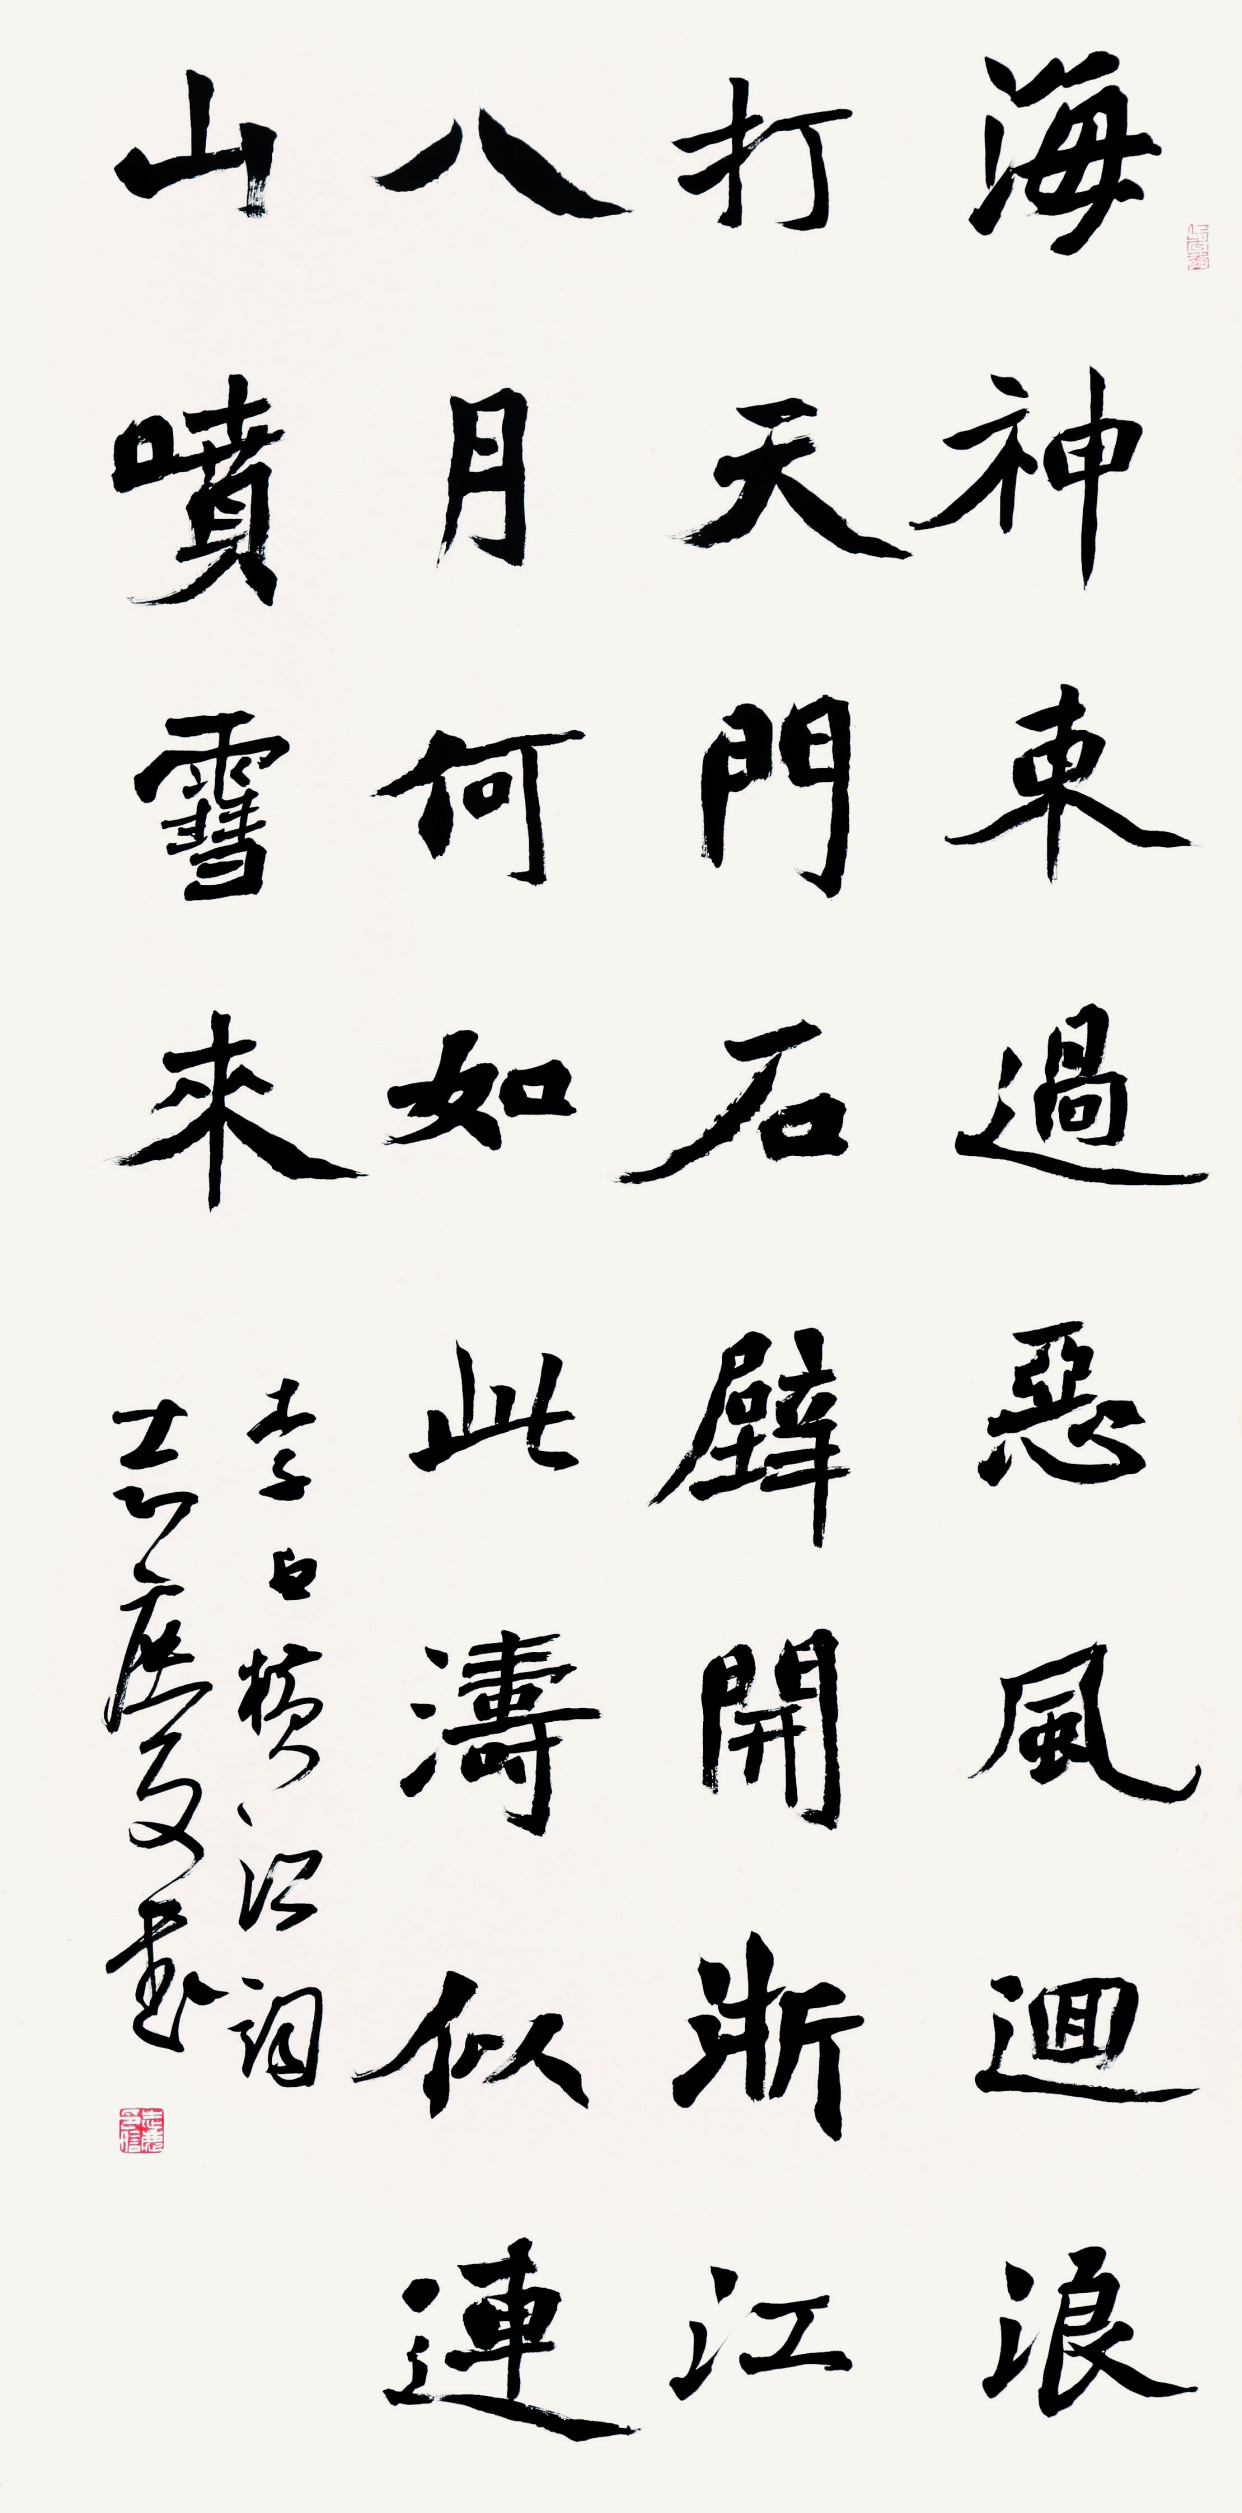 海神東過惡風迴浪
打天門石壁開浙江
八月何如此濤似連
山噴雪來
李白橫江詞